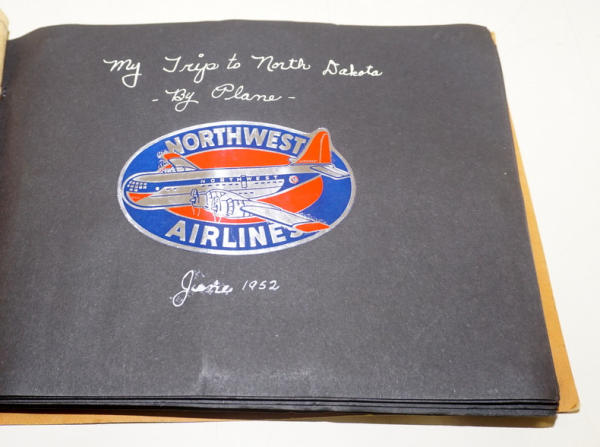 My Trip to North Dakota
- By Plane -
NORTHWEST
NORTHWEST
AIRLINES
June 1952